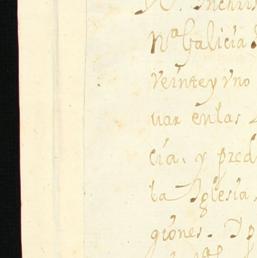 nª Galicia
veinte y vno
uar en las
cia, y pred
la Iglesia,
giones. Y p